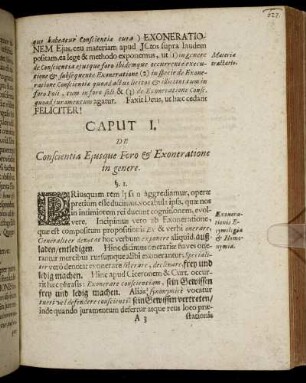 quo habeatur Conscientiæ cura) EXONERATIO-
NEM Ejus, ceu materiam apud JCtos supra laudem
positam, ea lege & methodo exponemus, ut (1) in genere
de Conscientia ejusque foro ibidemque occurrente
tione & subsequente Exoneratione (2) in specie de Exone-
ratione Conscientiæ quoad actus licitos & illicitos tam in
foro Poli, tum in foro soli & (3) de Exoneratione Consc.
quoad juramentum agatur. Faxit Deus, ut hæc cedant
FELICITER!
Materiæ
tractatio.
CAPUT I.
DE
Conscientia Ejusque Foro & Exoneratione
in genere.
§. 1.
PRiusquam rem ipsam aggrediamur, operæ
pretium esse ducimus, vocabula ipsa, quæ nos
in intimiorem rei ducunt cognitionem, evol-
vere. Incipimus vero ab Exoneratione,
quæ est compositum propositionis Ex & verbi onerare.
Generaliter denotat hoc verbum exonerare aliquid aus-
laden/ entledigen. Hinc dicimus exonerare naves one-
rantur mercibus rursusque alibi exonerantur. Speciali-
ter vero denotat exonerare liberare, declinare, frey und
ledig machen. Hinc apud Ciceronem & Curt. occur-
rit hæc phrasis: Exonerare conscientiam, sein Gewissen
frey und ledig machen. Alias synonymice vocatur
tueri vel defendere conscientiam, sein Gewissen vertreten/
inde quando juramentum defertur atque reus loco præ-
A 3
stationis
Exonera-
tionis E-
tymologia
& Homo-
nymia.